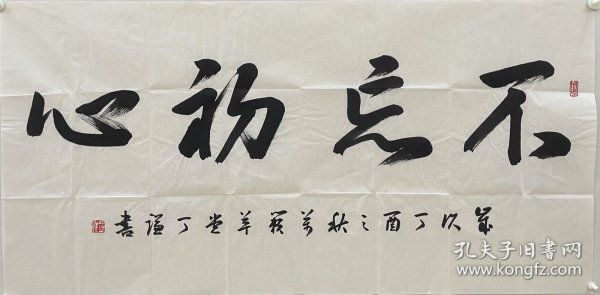 不忘初心
歲次丁酉之秋
丁谥書
孔夫子旧书网
www.kongfz.com